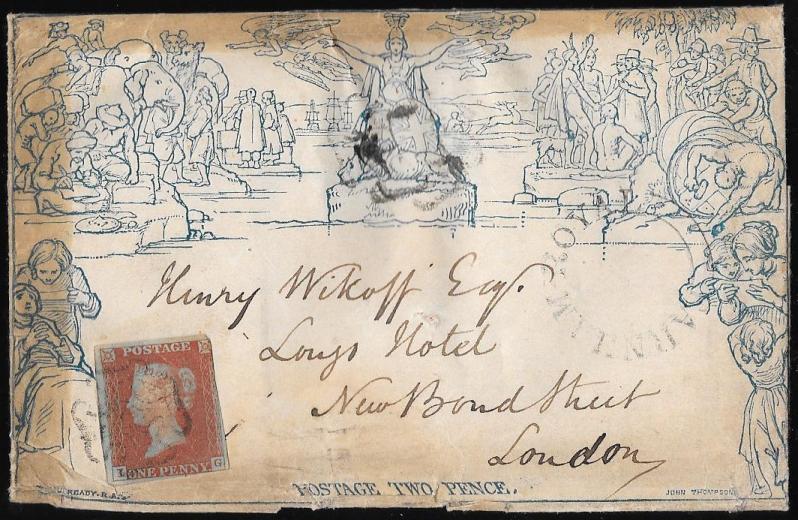 ROYAL
Henry Wikoff Esqr.
Longs Hotel
New Bond Street
London
POSTAGE
I G
ONE PENNY
POSTAGE TWO PENCE.
READY. R.A.
JOHN THOMPSON